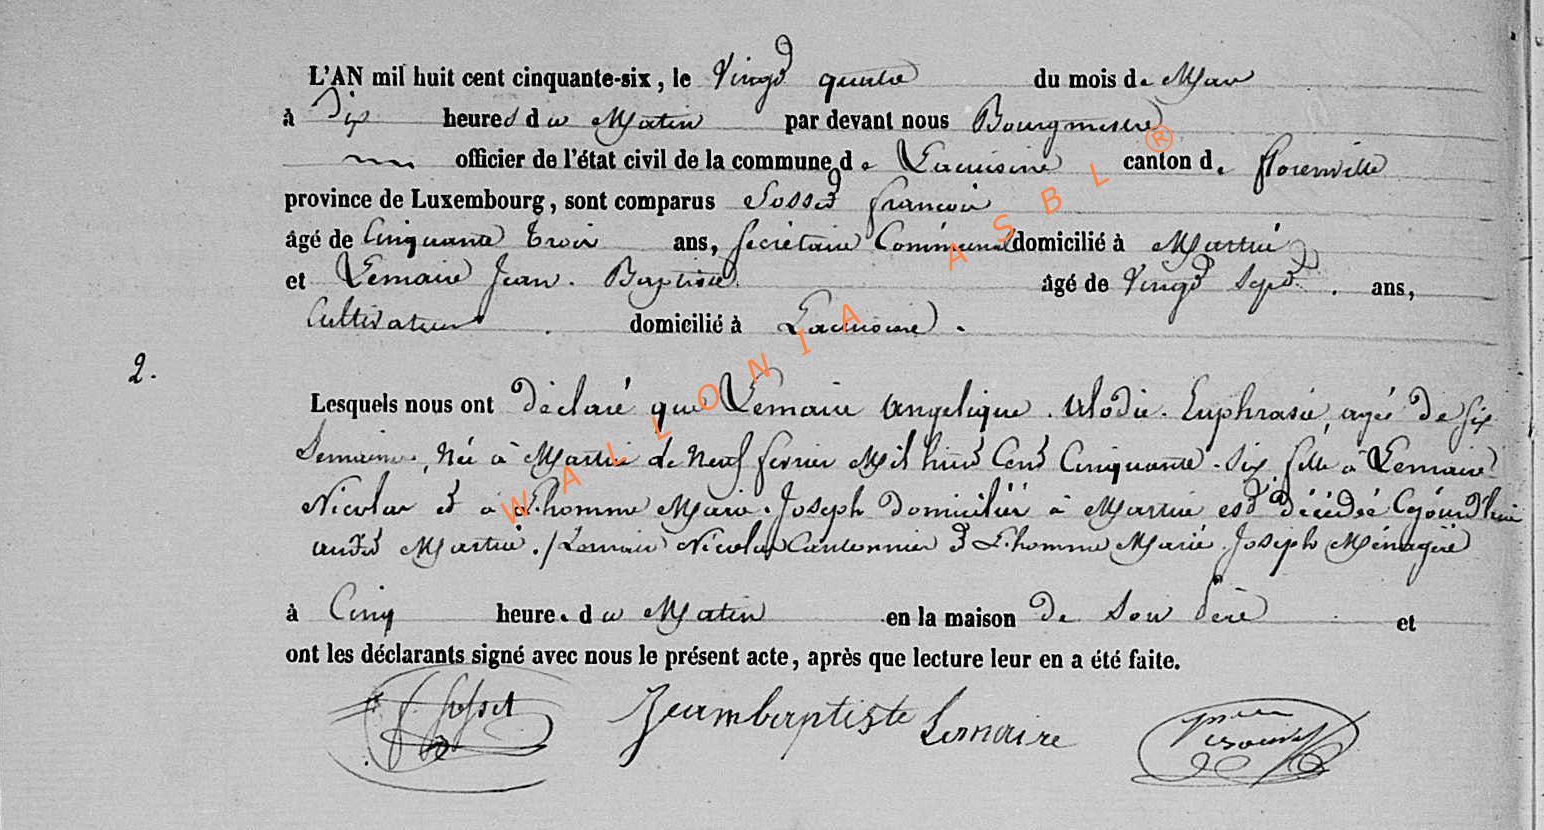 L'AN mil huit cent cinquante-six, le Vingt quatre du mois de Mars
à Dix heures du Matin par devant nous Bourgmestre
officier de l'état civil de la commune de Lacuisine canton de florenville
province de Luxembourg, sont comparus Sosset françois
âgé de Cinquante trois ans, Secrétaire Communal domicilié à Martué
et Lemaire Jean. Baptiste. âgé de Vingt Sept. ans,
Cultivateur. domicilié à Lacuisine.
2.
Lesquels nous ont déclaré que Lemaire Angelique. Elodie. Euphrasie, agée de Six
Semaines, Née à Martué le Neuf fevrier Mil huit Cent Cinquante. Six fille à Lemaire
Nicolas et à L'homme Marie. Joseph domiciliés à Martué est décédée Cejourd'hui
audit Martué. /Lemaire Nicolas Cantonnier et L'homme Marie. Joseph Ménagère
à Cinq heure. du Matin en la maison de Son Père et
ont les déclarants signé avec nous le présent acte, après que lecture leur en a été faite.
f. Sosset Jeambaptiste Lemaire
WALLONIA ASBL ®